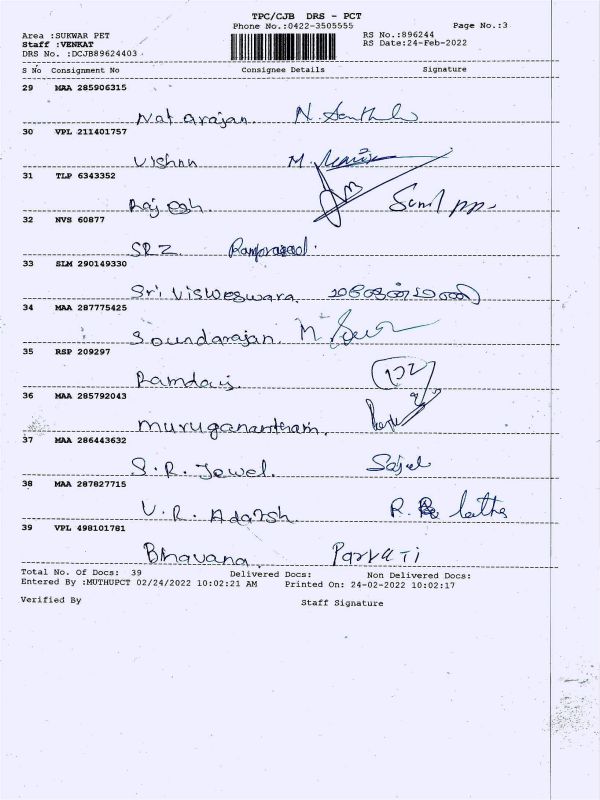 TPC/CJB DRS - PCT
Phone No.:0422-3505555
Page No.:3
Area :SUKWAR PET
RS No.:896244
Staff :VENKAT
RS Date:24-Feb-2022
DRS No. :DCJB89624403
S No Consignment No Consignee Details Signature
29 MAA 285906315
Natarajan.
30 VPL 211401757
Vishnu M.
31 TLP 6343352
Rajesh. Sunil pp.
32 NVS 60877
SRZ Ramprasad.
33 SLM 290149330
Sri Visweswara
34 MAA 287775425
Soundarajan.
35 RSP 209297
Ramdais.
36 MAA 285792043
Muruganantham.
37 MAA 286443632
S.R. Jewel.
38 MAA 287827715
V.R. Adarsh R. latha
39 VPL 498101781
Bhavana ParvaTi
Total No. Of Docs: 39 Delivered Docs: Non Delivered Docs:
Entered By :MUTHUPCT 02/24/2022 10:02:21 AM Printed On: 24-02-2022 10:02:17
Verified By Staff Signature